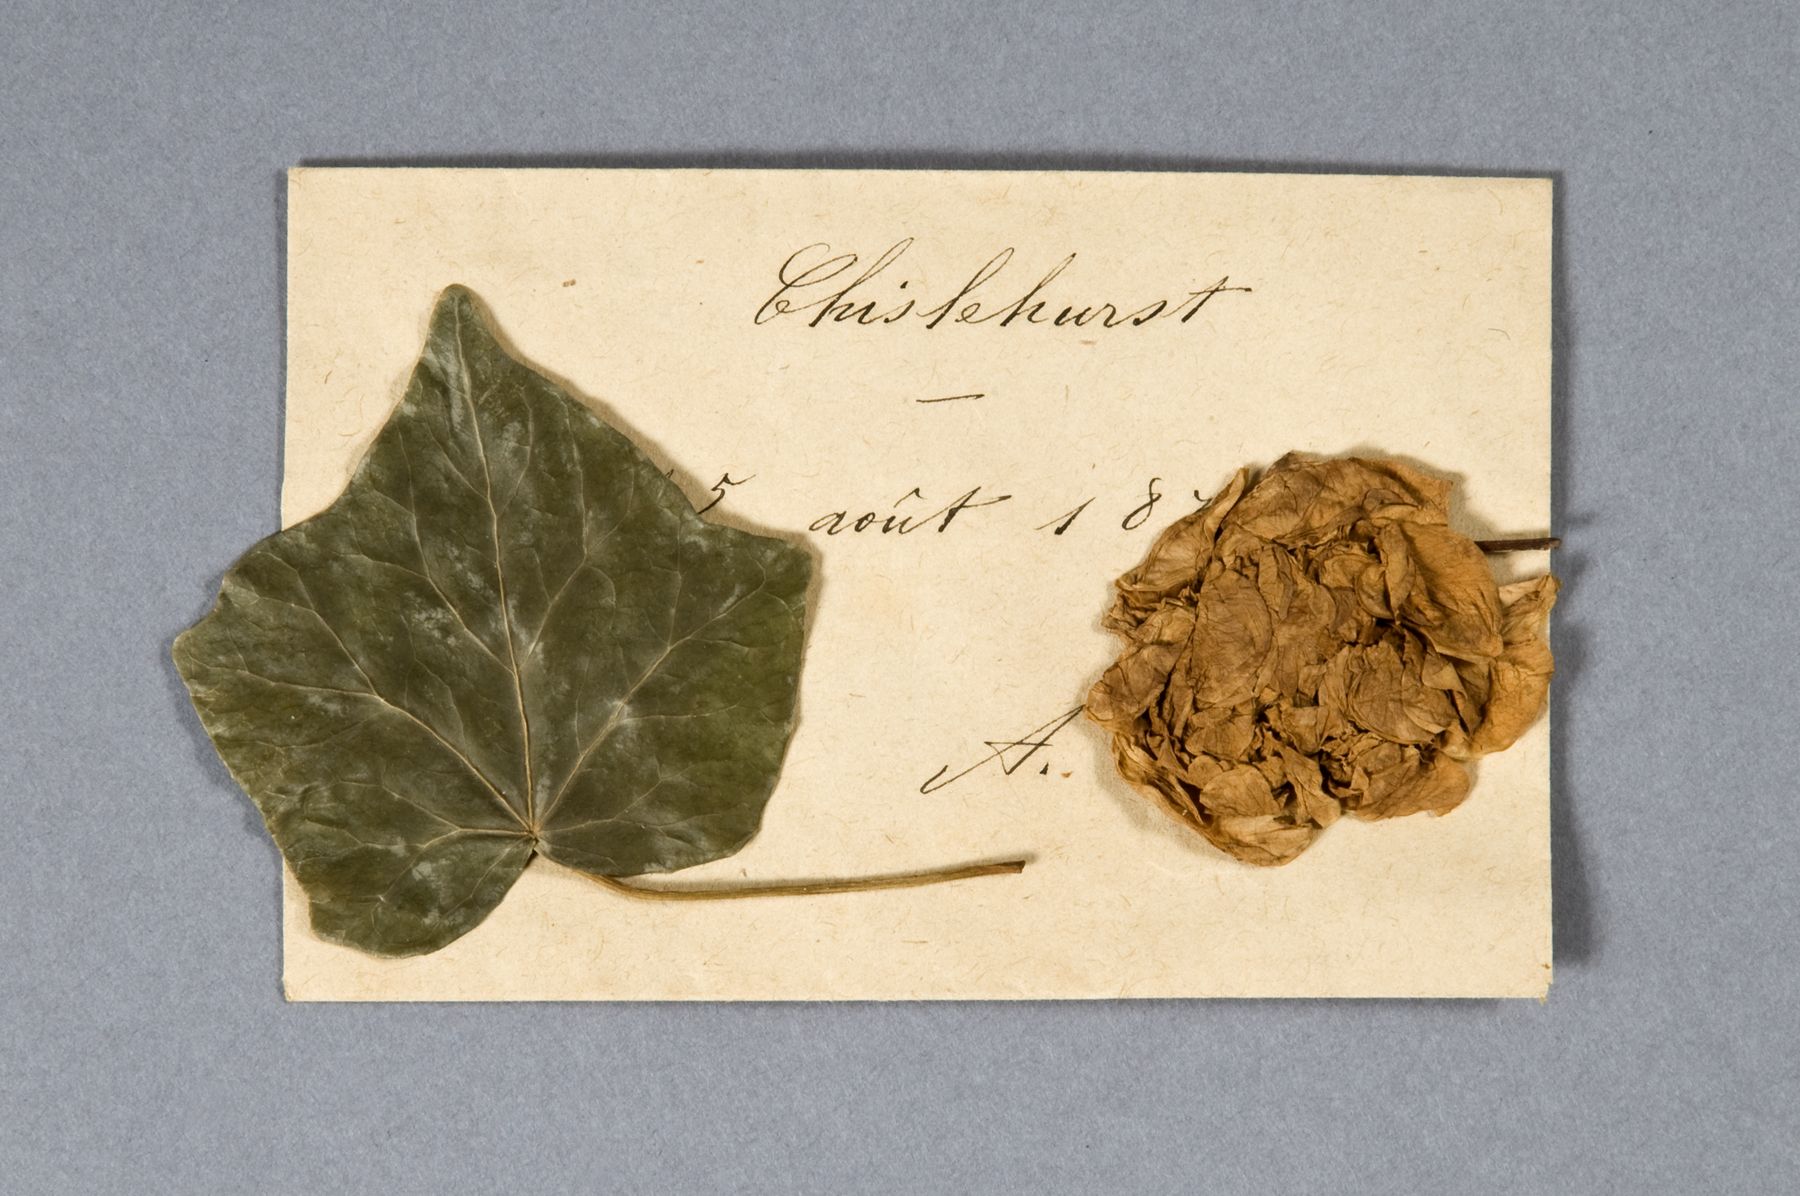 Chislehurst
—
5 août 187
A.